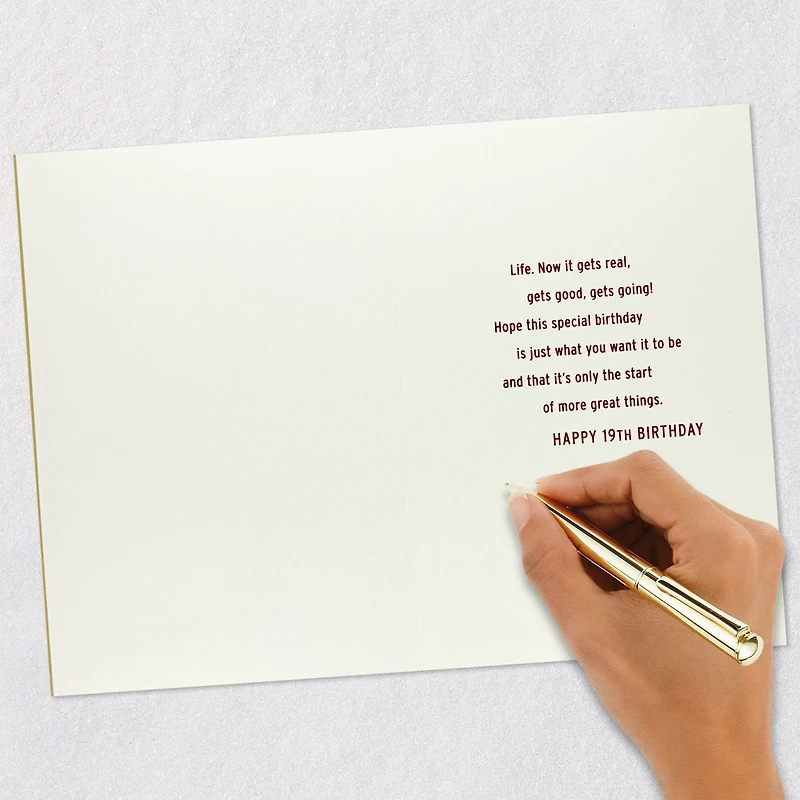 Life. Now it gets real,
gets good, gets going!
Hope this special birthday
is just what you want it to be
and that it's only the start
of more great things.
HAPPY 19TH BIRTHDAY